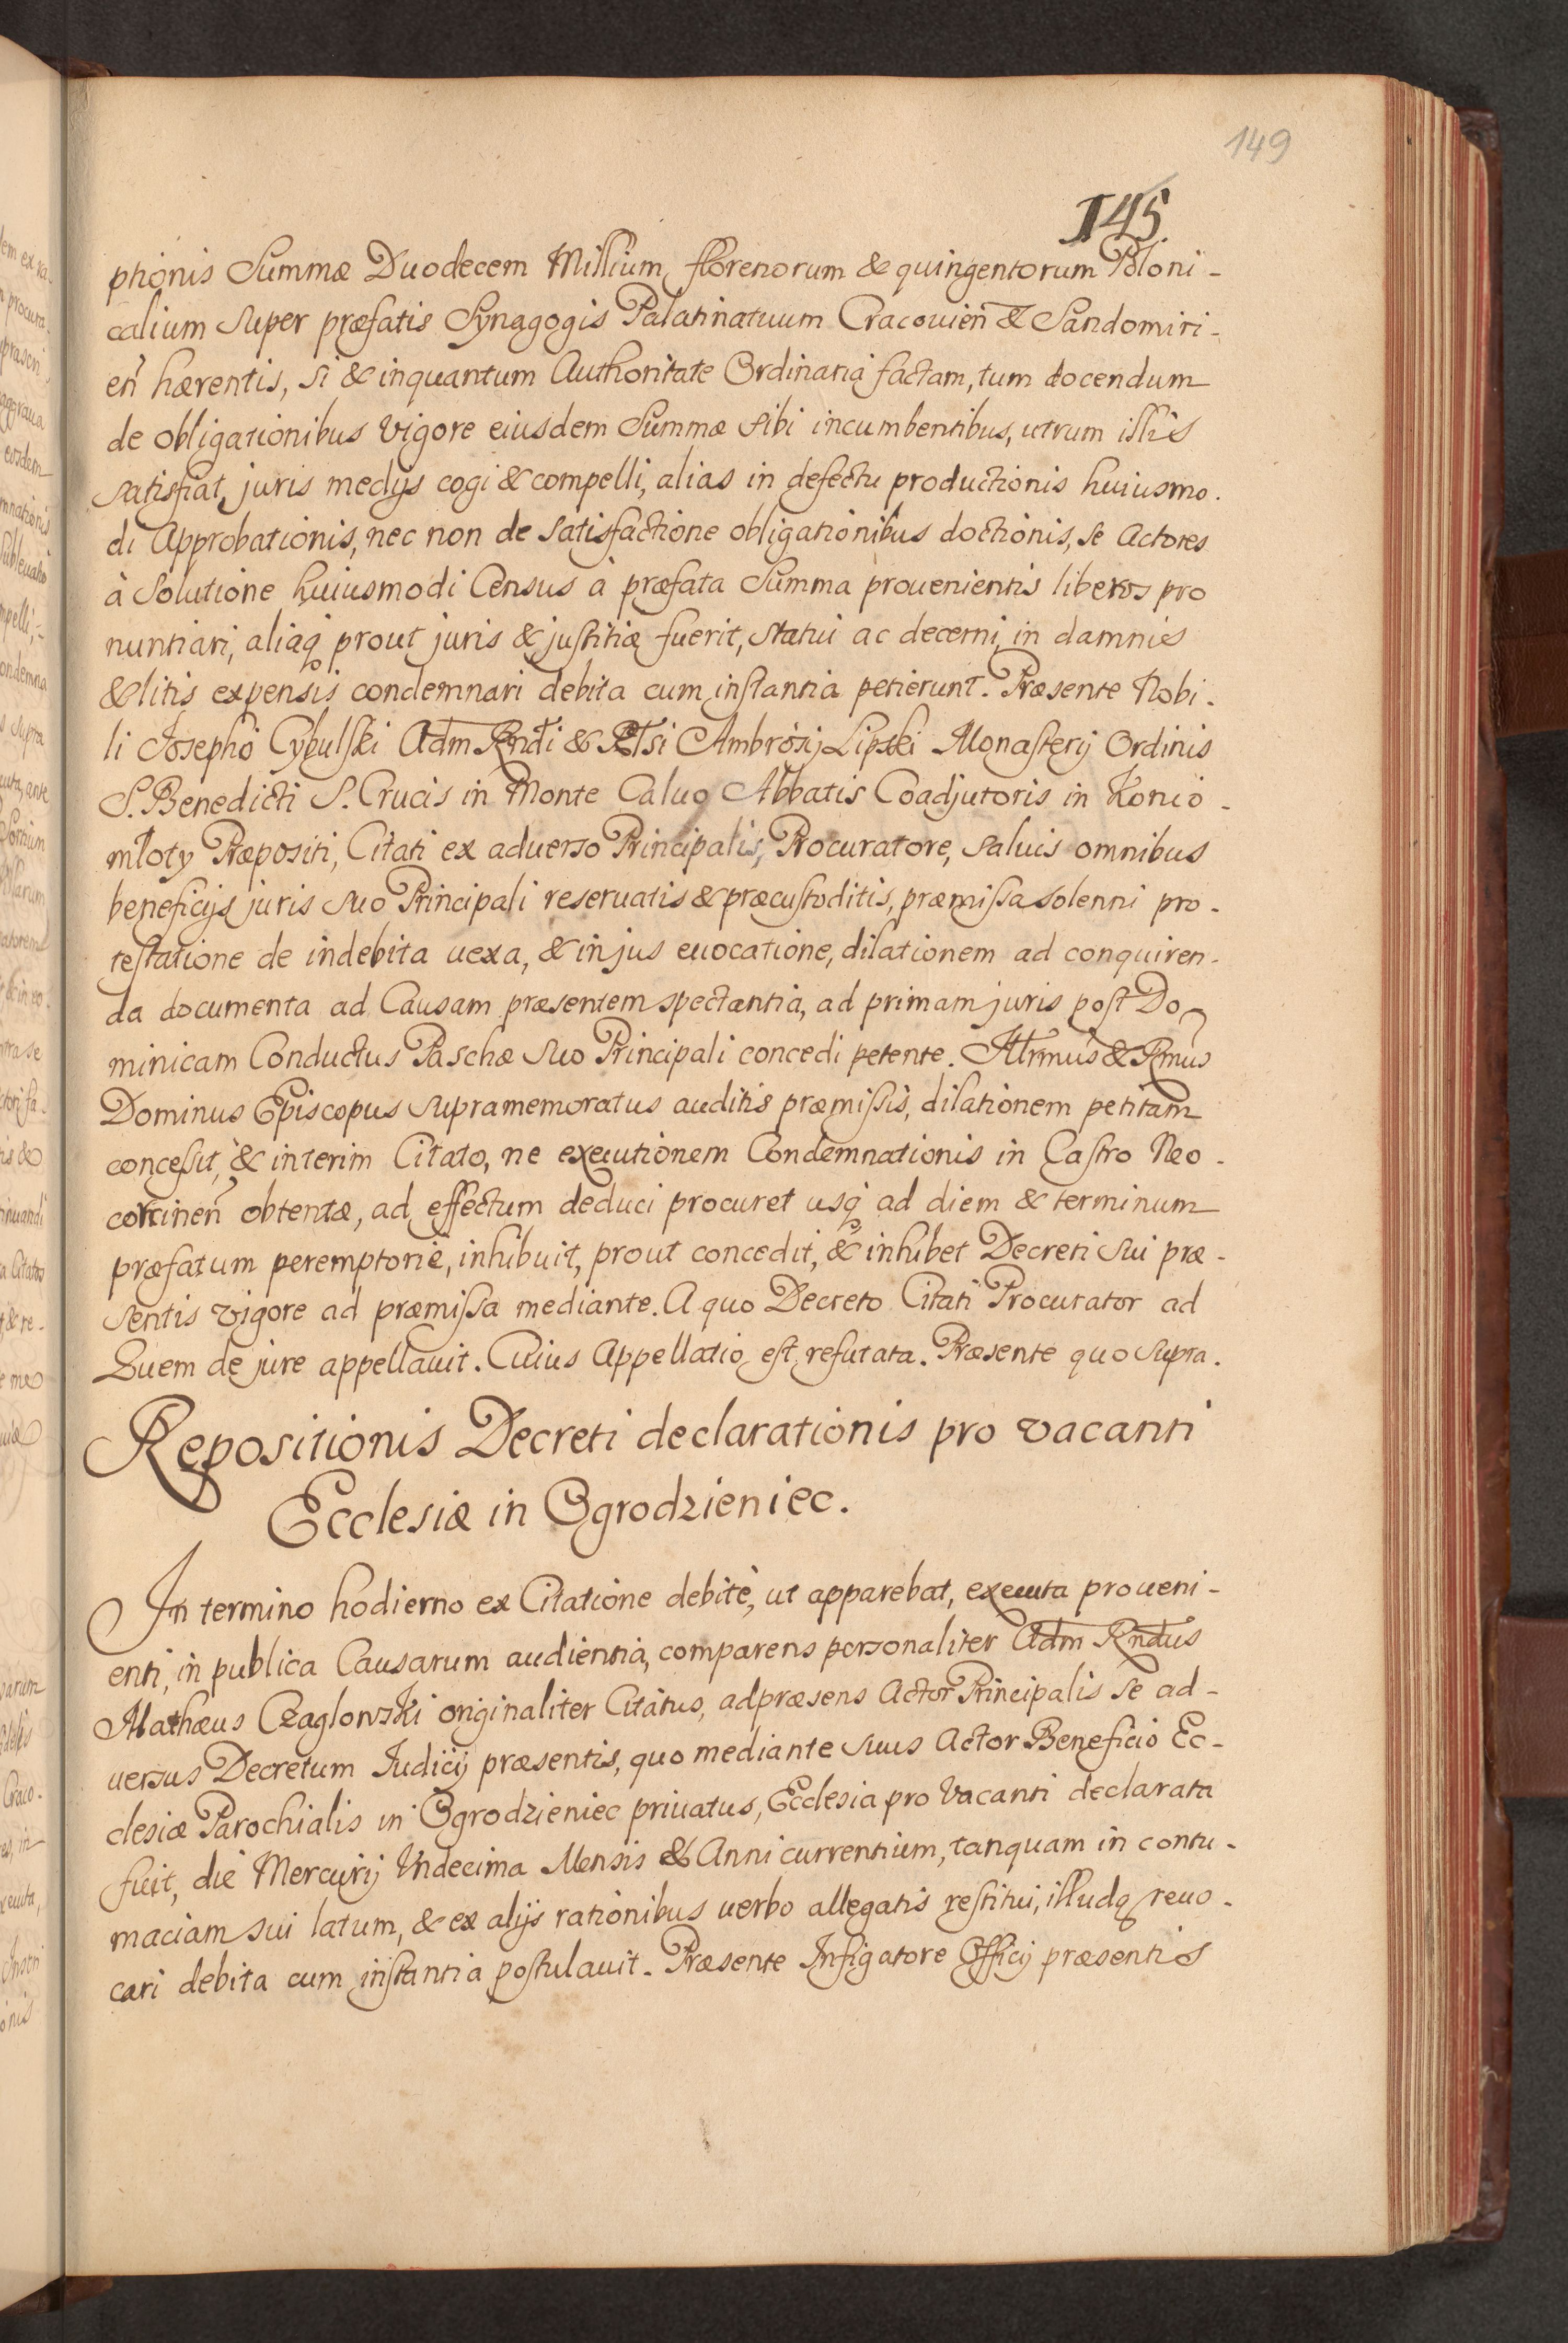 149
145
ptionis Summæ Duodecem Millium florenorum & quingentorum Poloni-
calium super præfatis Synagogis Palatinatuum Cracovien̄ & Sandomiri-
en̄ hærentis, si & inquantum Authoritate Ordinaria factam, tum docendum
de obligationibus vigore eiusdem Summæ sibi incumbentibus, utrum illis
satisfiat, juris medijs cogi & compelli, alias in defectu productionis huiusmo.
di Approbationis, nec non de satisfactione obligationibus doctionis, se Actores
à solutione huiusmodi Census à præfata Summa prouenientis liberos pro
nuntiari, aliaq prout juris & justitiæ fuerit, statui ac decerni, in damnis
& litis expensis condemnari debita cum instantia petierunt. Præsente Nobi-
li Josepho Cybulski Adm Rndi & Rltsi Ambrosij Lipski Monasterij Ordinis
S. Benedicti S. Crucis in Monte Caluo Abbatis Coadjutoris in Konio-
mloty Præpositi, Citati ex aduerso Principalis, Procuratore, saluis omnibus
beneficijs juris suo Principali reseruatis & præcustoditis, præmissa solenni pro-
testatione de indebita uexa, & in jus euocatione, dilationem ad conquiren-
da documenta ad Causam præsentem spectantia, ad primam juris post Do-
minicam Conductus Paschæ suo Principali concedi petente. Illrmus & Rmus
Dominus Episcopus supramemoratus auditis præmissis, dilationem petitam
concessit, & interim Citato, ne executionem Condemnationis in Castro Neo-
corcinen̄ obtentæ, ad effectum deduci procuret usq ad diem & terminum
præfatum peremptorie, inhibuit, prout concedit, & inhibet Decreti sui præ-
sentis vigore ad præmissa mediante. A quo Decreto Citati Procurator ad
Quem de jure appellauit. Cuius Appellatio est refutata. Præsente quo supra.
Repositionis Decreti declarationis pro vacanti
Ecclesiæ in Ogrodzieniec.
In termino hodierno ex Citatione debitè, ut apparebat, executa proueni-
enti, in publica Causarum audientia, comparens personaliter Adm Rndus
Mathæus Czaglowski originaliter Citatus, ad præsens Actor Principalis se ad-
uersus Decretum Iudicij præsentis, quo mediante suus Actor Beneficio Ec-
clesiæ Parochialis in Ogrodzieniec priuatus, Ecclesia pro Vacanti declarata
fuit, die Mercurij Vndecima Mensis & Anni currentium, tanquam in contu-
maciam sui latum, & ex alijs rationibus uerbo allegatis restitui, illudq reuo-
cari debita cum instantia postulauit. Præsente Instigatore Officij præsentis